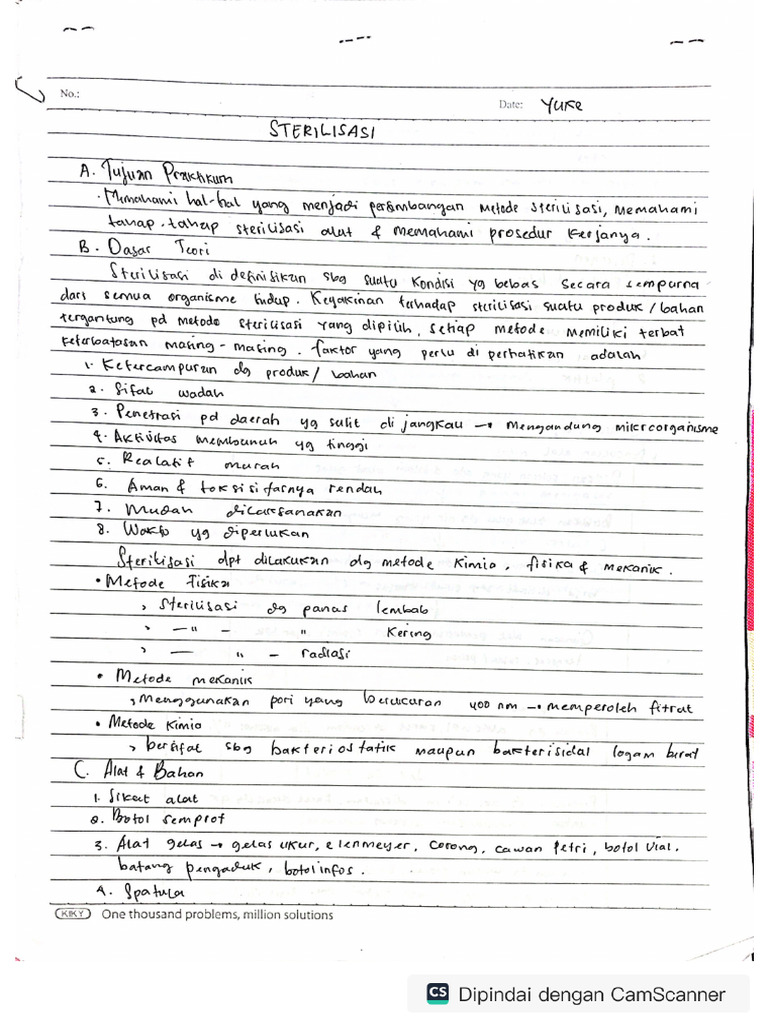 No.:
Date: Yuke
STERILISASI
A. Tujuan Praktikum
· Memahami hal-hal yang menjadi pertimbangan metode sterilisasi, memahami
tahap-tahap sterilisasi alat & memahami prosedur kerjanya.
B. Dasar Teori
Sterilisasi di definisikan sbg suatu kondisi yg bebas secara sempurna
dari semua organisme hidup. Keyakinan terhadap sterilisasi suatu produk / bahan
tergantung pd metode sterilisasi yang dipilih, setiap metode memiliki terbat
keterbatasan masing-masing. faktor yang perlu di perhatikan adalah
1. Ketercampuran dg produk / bahan
2. Sifat wadah
3. Penetrasi pd daerah yg sulit di jangkau → mengandung mikroorganisme
4. Aktivitas membunuh yg tinggi
5. Realatif murah
6. Aman & toksisitasnya rendah
7. Mudah dilaksanakan
8. Waktu yg diperlukan
Sterilisasi dpt dilakukan dg metode kimia, fisika & mekanik.
• Metode Fisika
> Sterilisasi dg panas lembab
> — " — " Kering
> — " — radiasi
• Metode mekanik
> menggunakan pori yang berukuran 400 nm → memperoleh fitrat
• Metode Kimia
> bersifat sbg bakteriostatik maupun bakterisidal logam berat
C. Alat & Bahan
1. Sikat alat
2. Botol semprot
3. Alat gelas → gelas ukur, elenmeyer, corong, cawan petri, botol vial,
batang pengaduk, botol infos.
4. Spatula
KIKY One thousand problems, million solutions
CS Dipindai dengan CamScanner